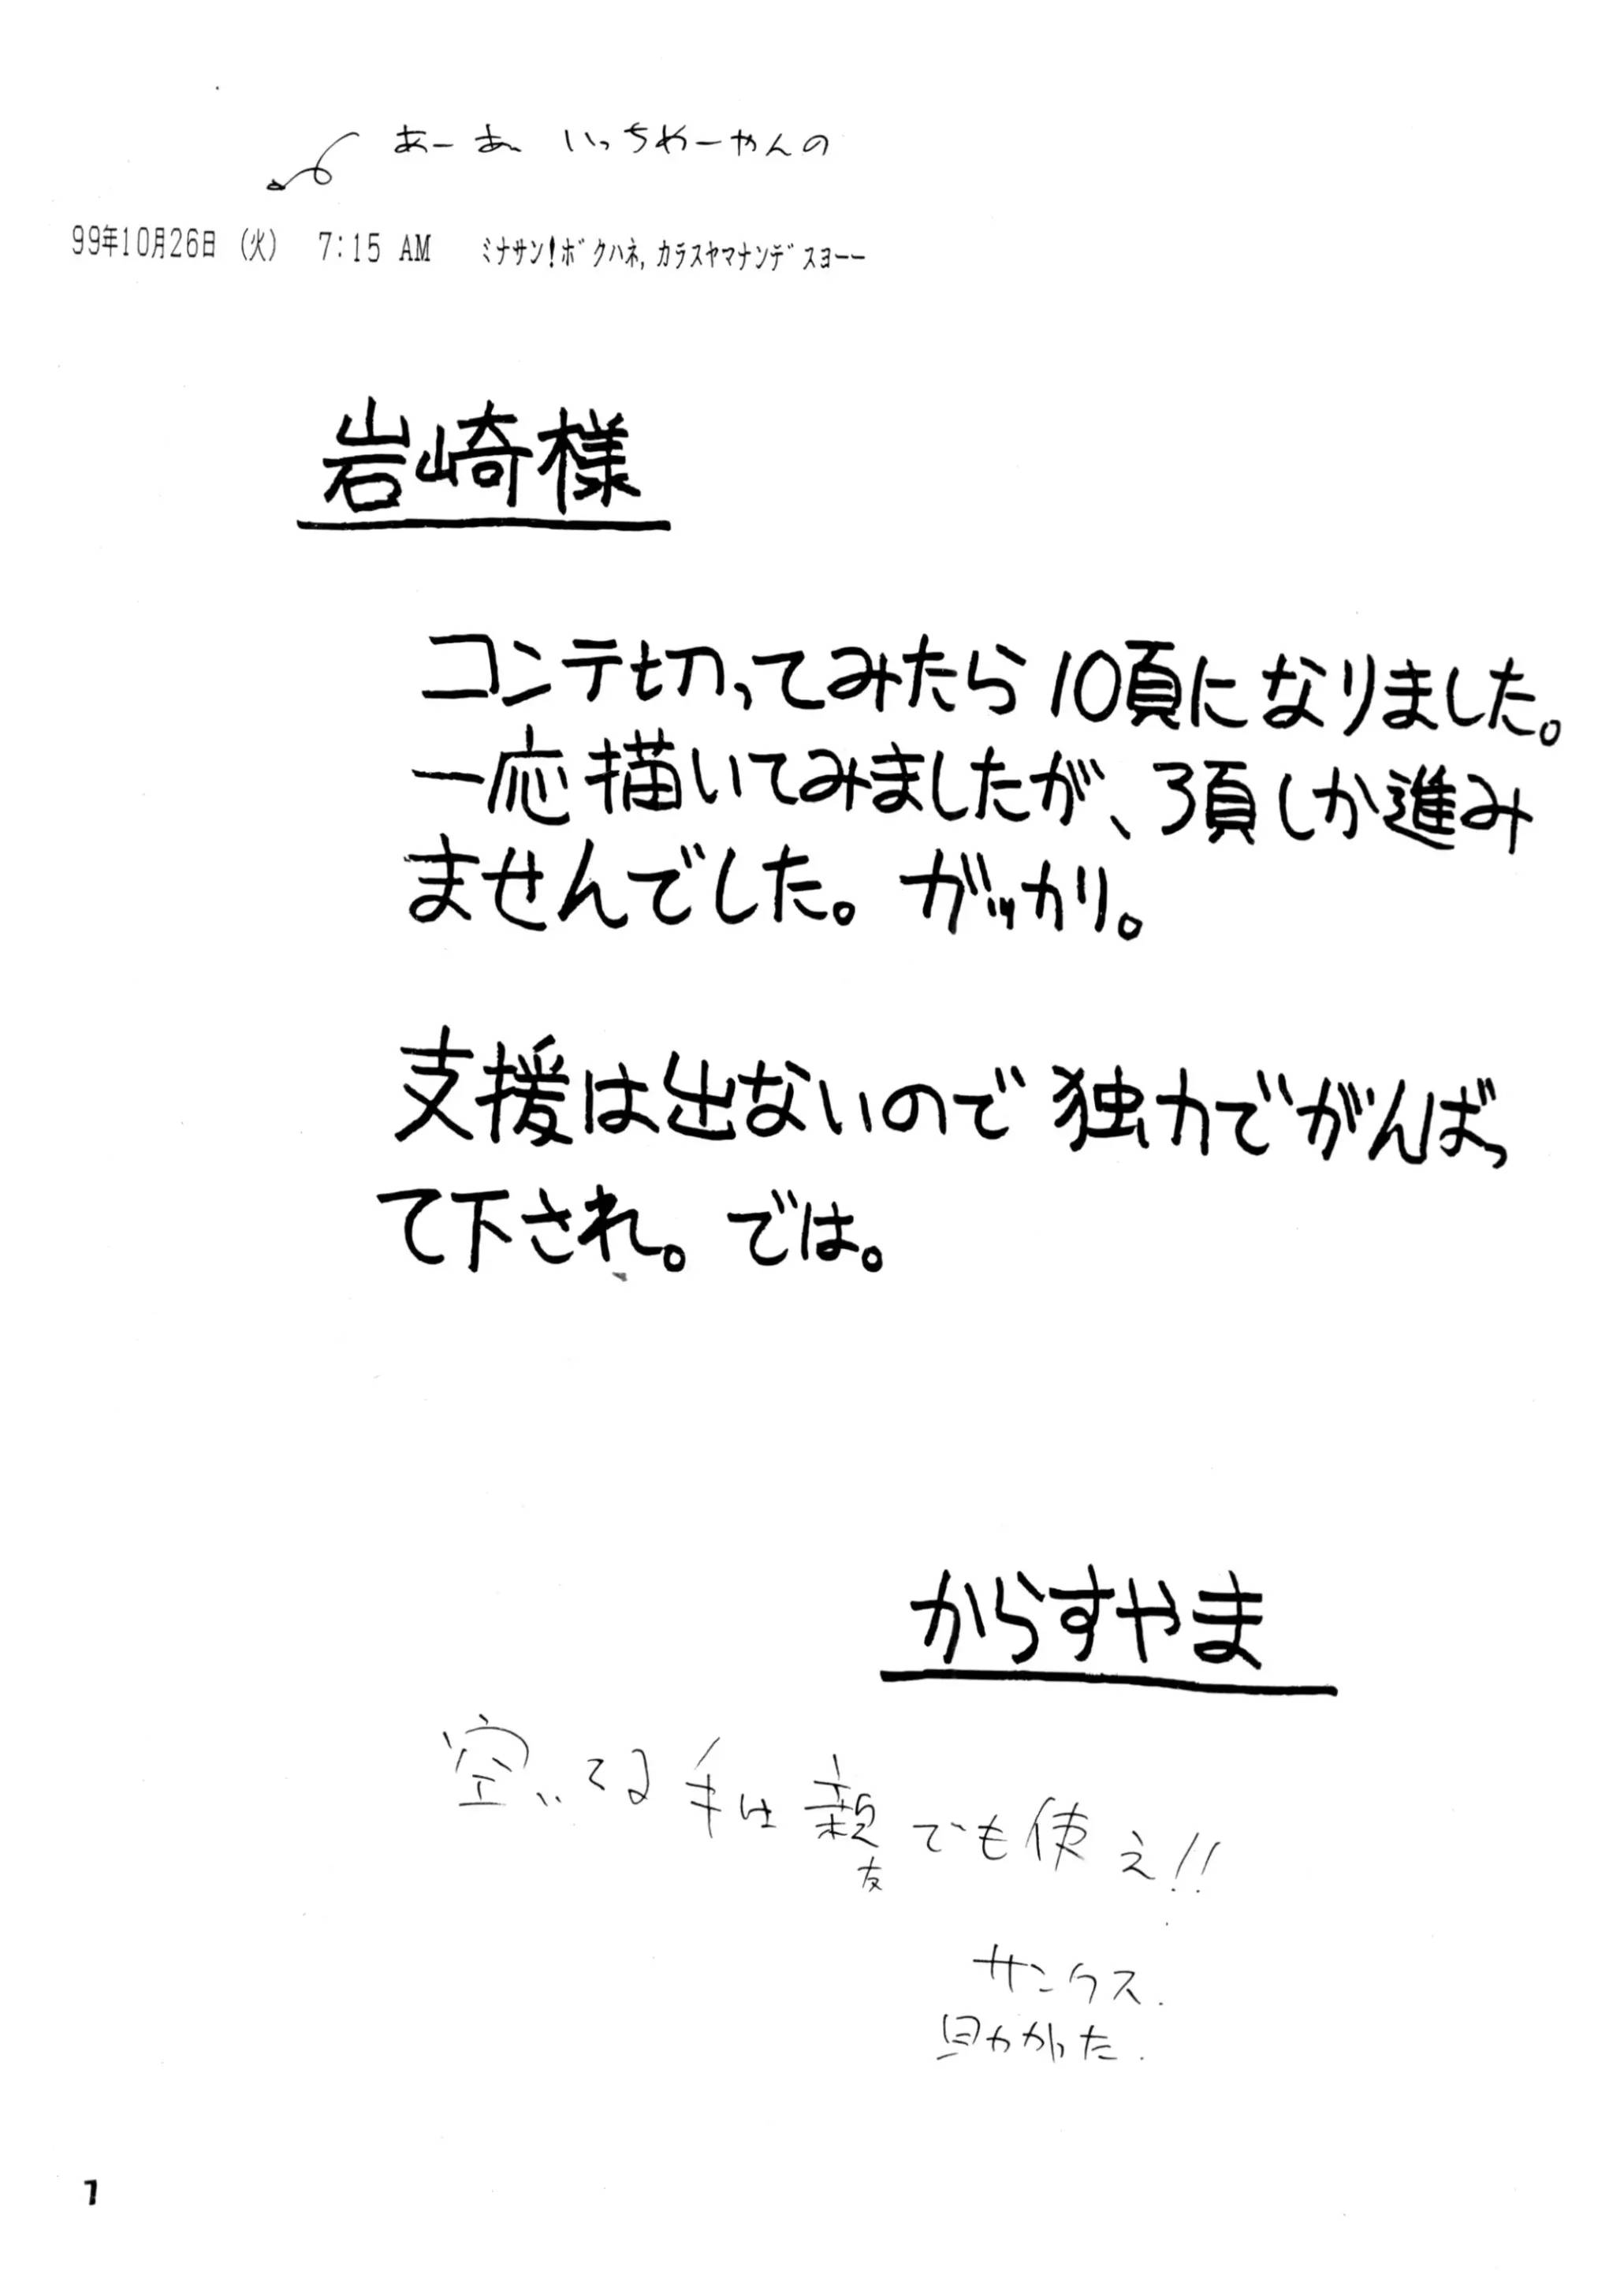 あーあ いっちゃーやんの
99年10月26日 (火) 7:15 AM ミナサン!ボクハネ,カラスヤマナンデスヨーー
岩崎様
コンテ切ってみたら10頁になりました。
一応描いてみましたが、3頁しか進み
ませんでした。ガッカリ。
支援は出ないので独力でがんばっ
て下され。では。
からすやま
空いてる手は親でも使え!!
友
サンクス.
助かった.
1